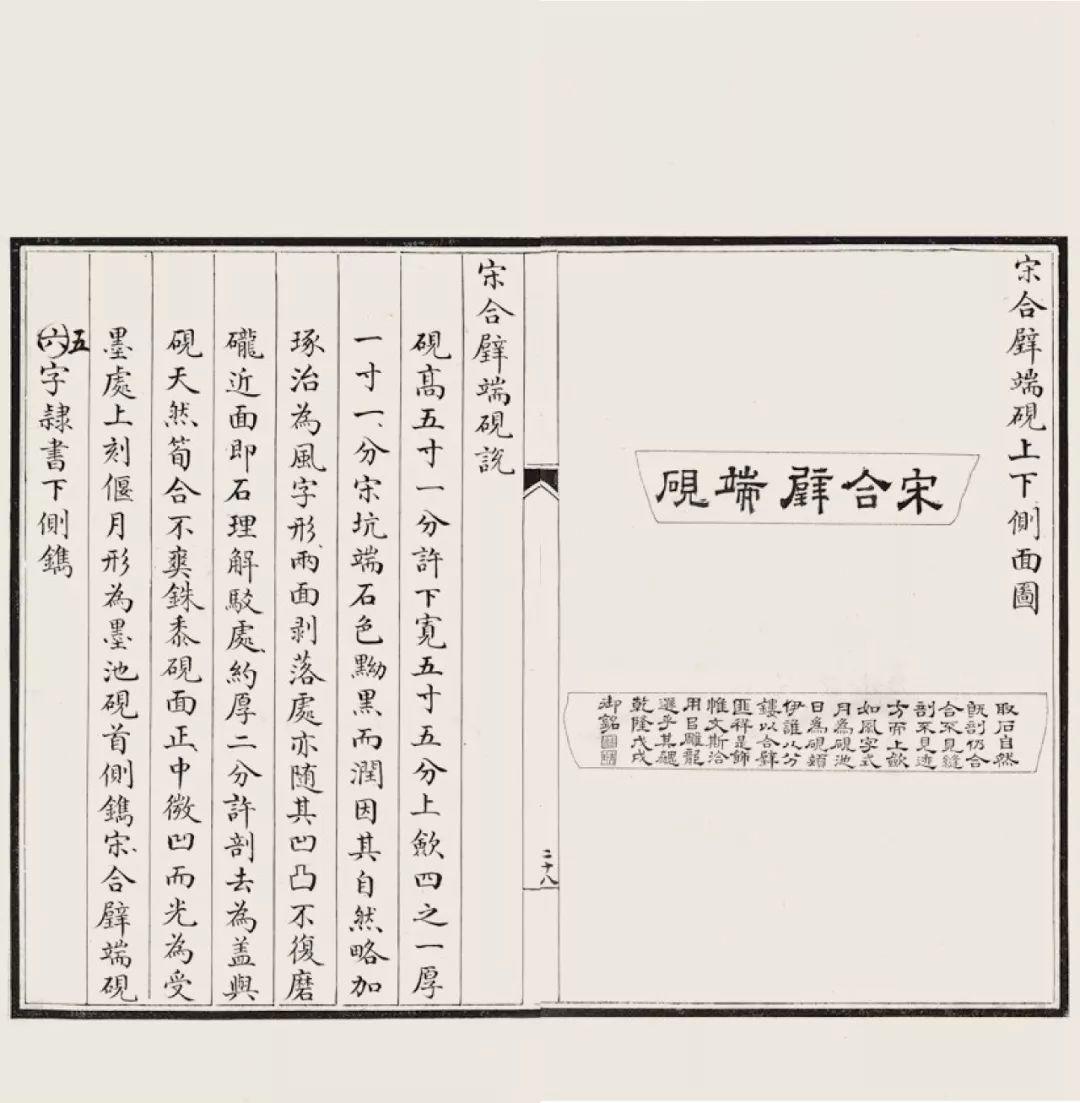 宋合璧端硯上下側面圖
宋合璧端硯
取石自然
既剖仍合
合不見縫
剖不見迹
方而上歛
如風字式
月為硯池
日為硯頟
伊誰八分
鏤以合璧
匪祥是飾
惟文斯洽
用召雕龍
選乎其硯
乾隆戊戌
御銘
二十八
宋合璧端硯說
硯高五寸一分許下寬五寸五分上歛四之一厚
一寸一分宋坑端石色黝黑而潤因其自然略加
琢治為風字形兩面剥落處亦随其凹凸不復磨
礲近面即石理解駁處約厚二分許剖去為盖與
硯天然筍合不爽銖黍硯面正中微凹而光為受
墨處上刻偃月形為墨池硯首側鐫宋合璧端硯
五
六字隸書下側鐫